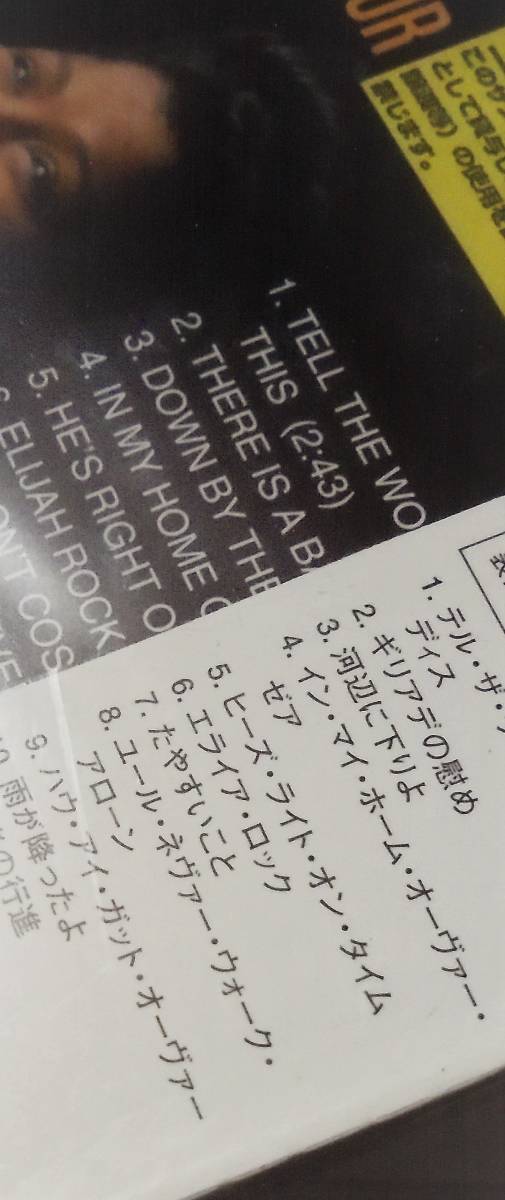 UR
このサン
として貸与し
の使用を
禁じます。
1. TELL THE WO
THIS (2:43)
2. THERE IS A BA
3. DOWN BY THE
4. IN MY HOME O
5. HE'S RIGHT O
6. ELIJAH ROCK
ON'T COS
1. テル・ザ・ワ
ディス
2. ギリアデの慰め
3. 河辺に下りよ
4. イン・マイ・ホーム・オーヴァー・
ゼア
5. ヒーズ・ライト・オン・タイム
6. エライア・ロック
7. たやすいこと
8. ユール・ネヴァー・ウォーク・
アローン
9. ハウ・アイ・ガット・オーヴァー
10. 雨が降ったよ
の行進